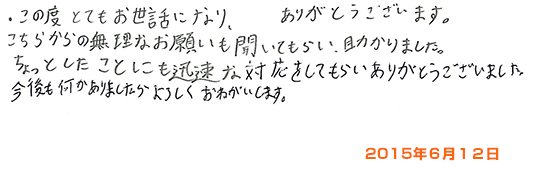 ・この度とてもお世話になり、 ありがとうございます。
こちらからの無理なお願いも聞いてもらい、助かりました。
ちょっとしたことにも迅速な対応をしてもらいありがとうございました。
今後も何かありましたらよろしくおねがいします。
2015年6月12日